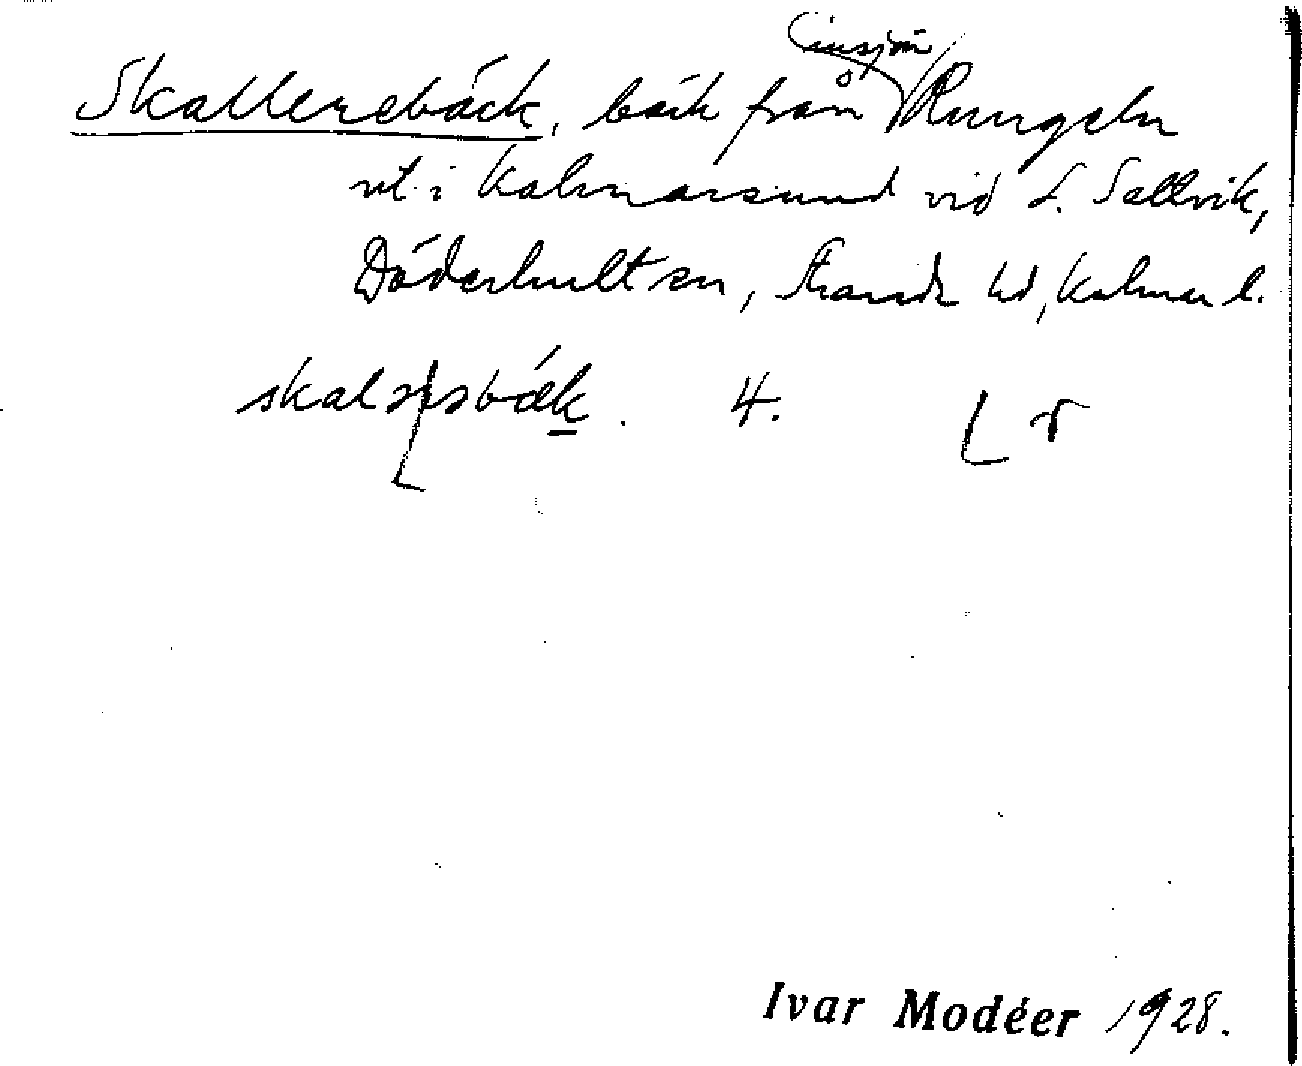 insjön
Skallerebäck, bäck från Rungeln
ut i Kalmarsund vid L. Sallvik,
Döderhult sn, Stranda hd, Kalmar l.
4.
Ivar Modéer 1928.